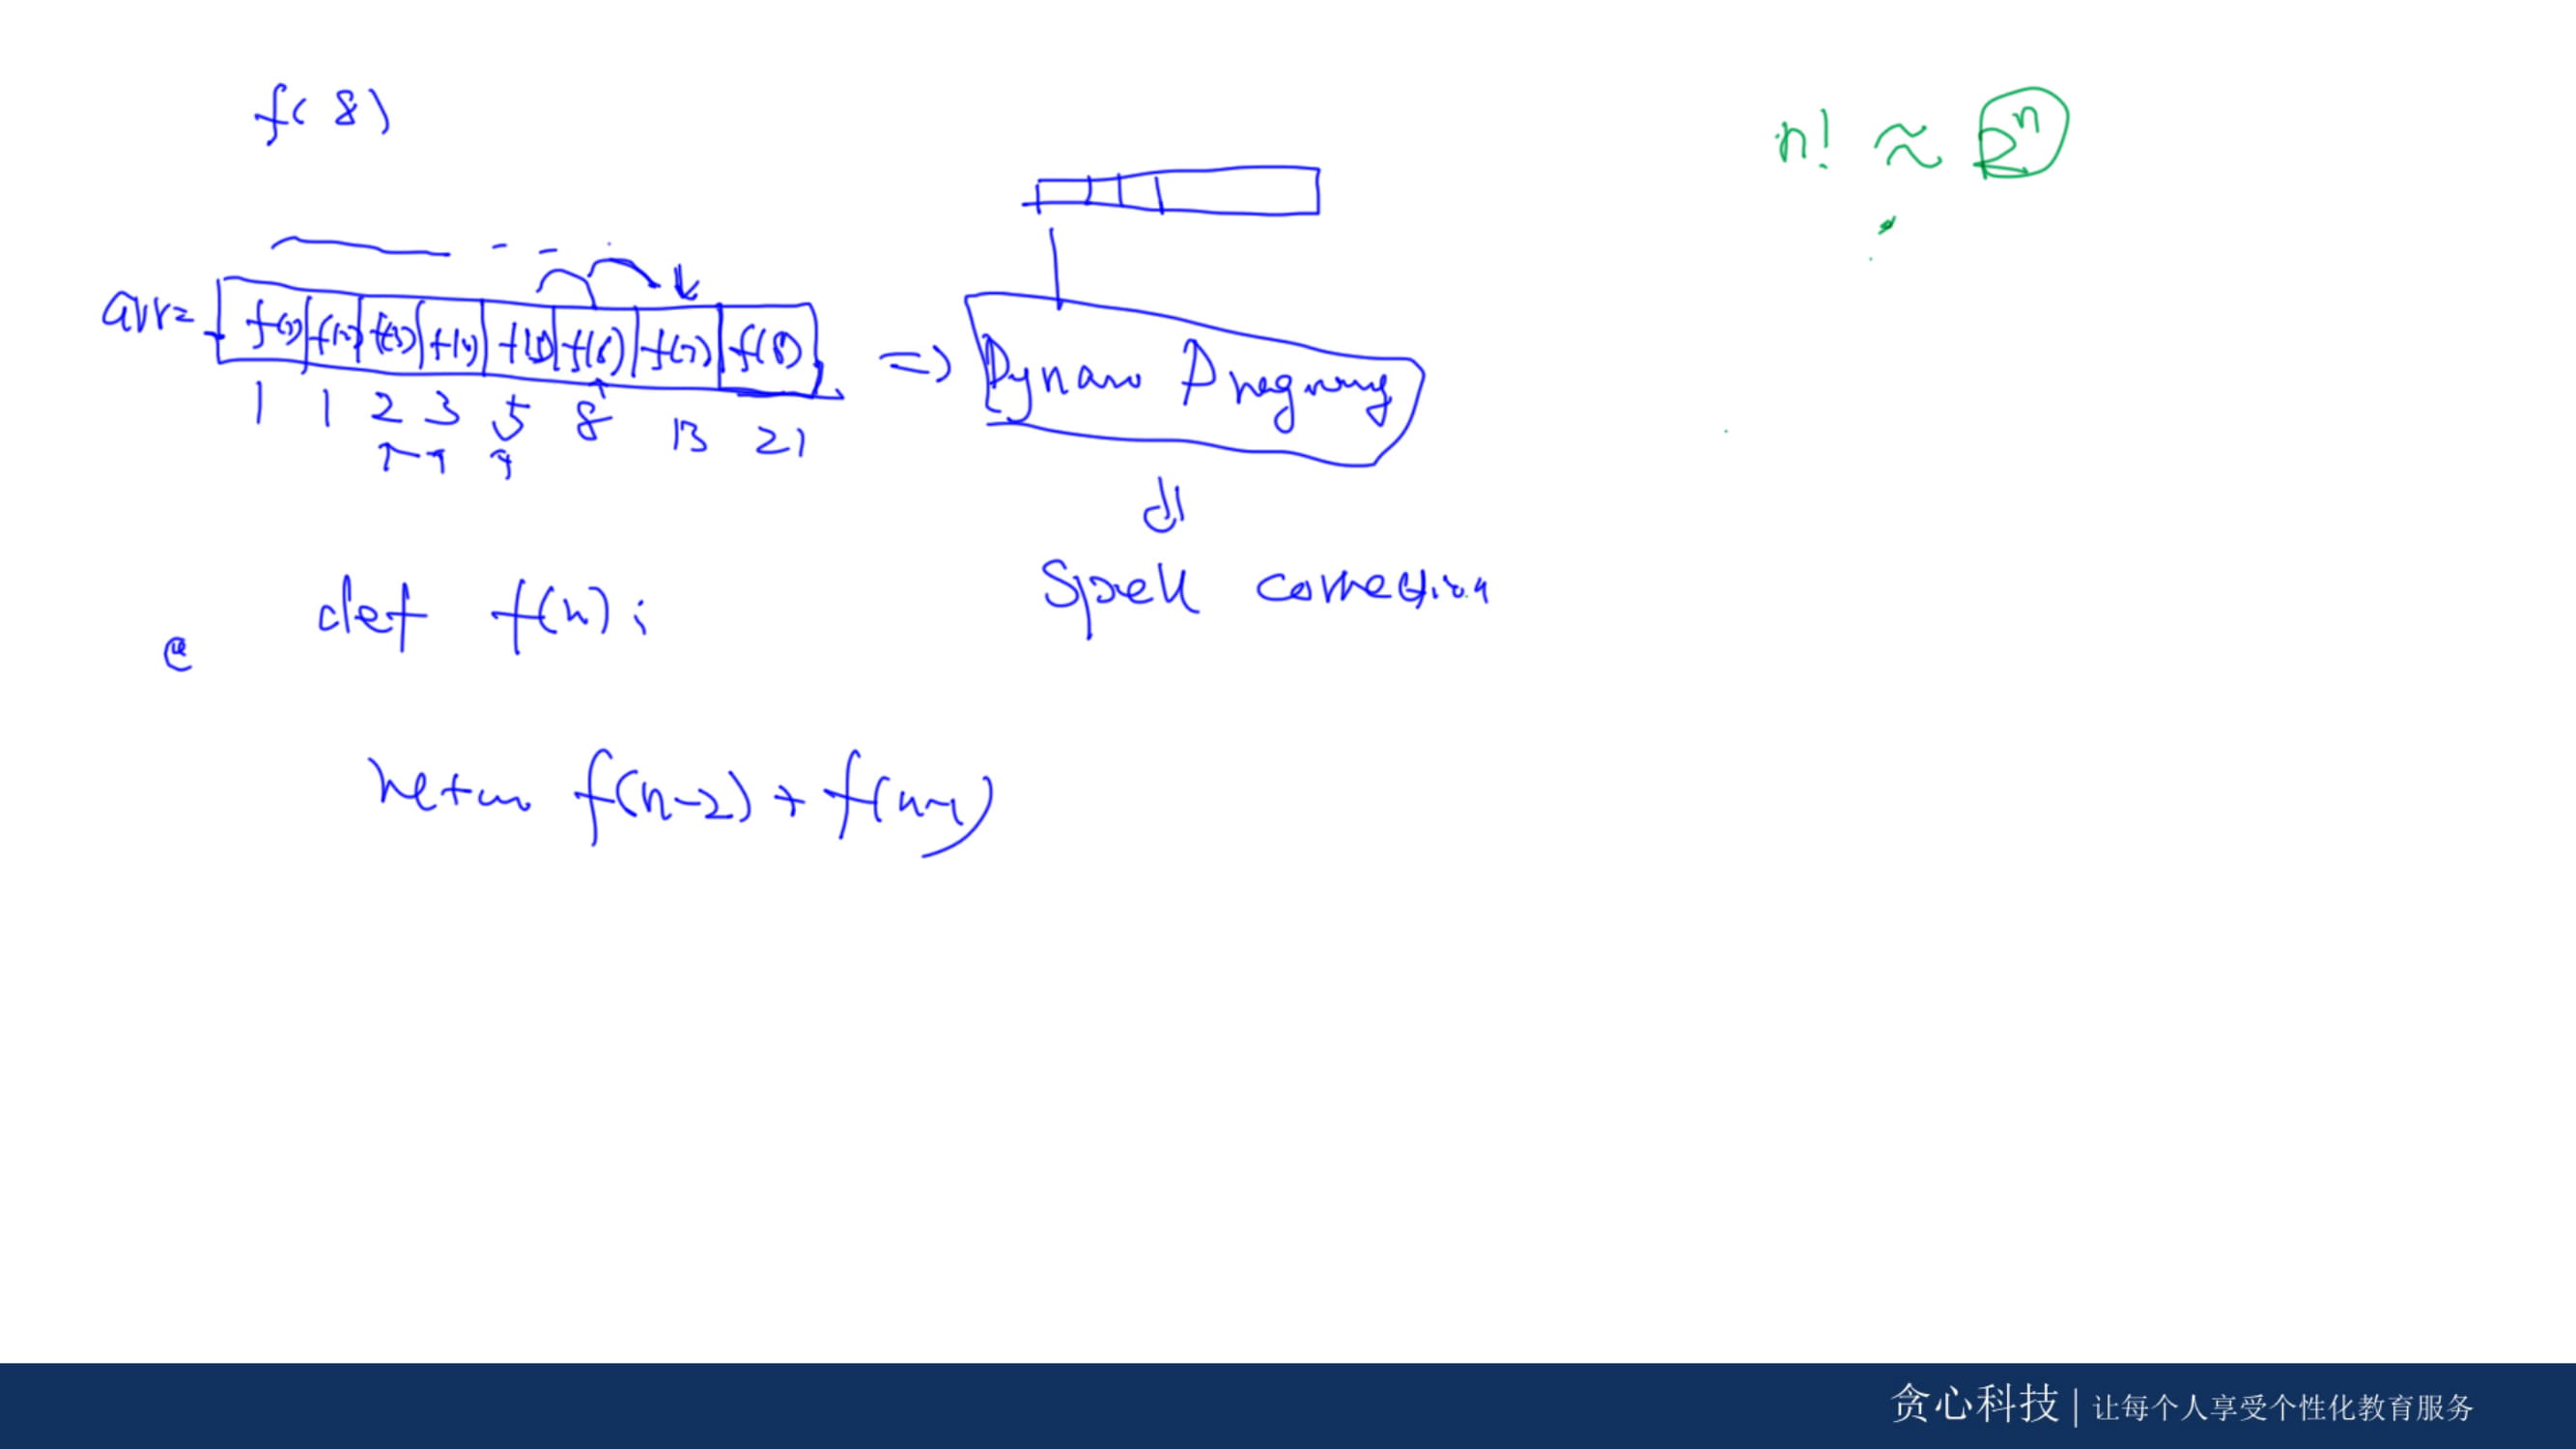 f( 8 )
n! ≈ 2^n
arr= f(1) f(2) f(3) f(4) f(5) f(6) f(7) f(8)
1 1 2 3 5 8 13 21
=>
Spell correction
def f(n):
return f(n-2) + f(n-1)
贪心科技 | 让每个人享受个性化教育服务